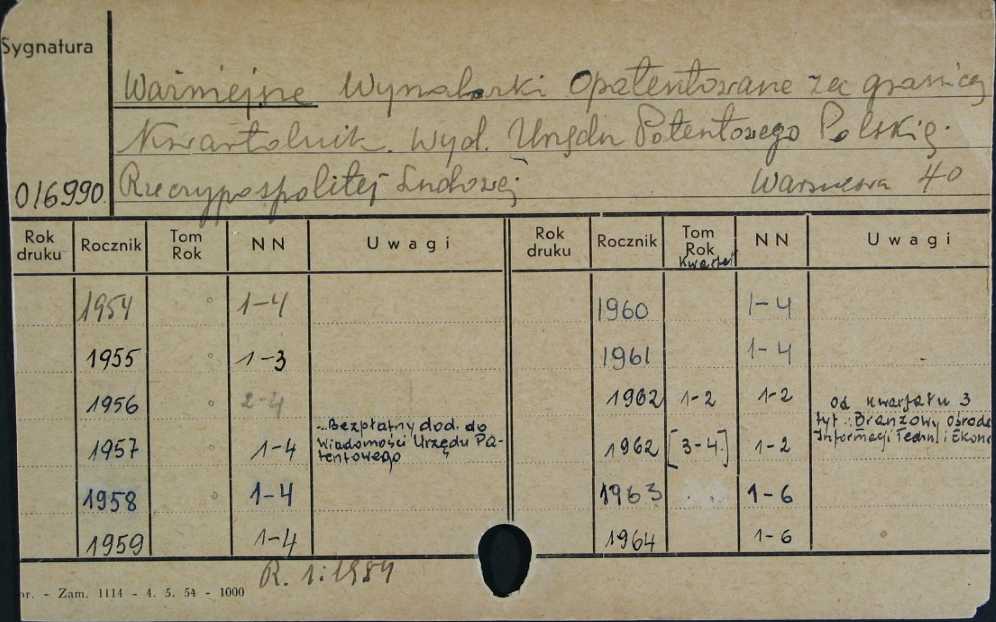 Sygnatura
Ważniejsze Wynalazki Opatentowane za granicą
Kwartalnik. Wyd. Urzędu Patentowego Polskiej
016990 Rzeczypospolitej Ludowej Warszawa 40
Rok druku Rocznik Tom Rok NN Uwagi Rok druku Rocznik Tom Rok Kwartał NN Uwagi
1954 1-4 1960 1-4
1955 1-3 1961 1-4
1956 2-4 1962 1-2 1-2 Od kwartału 3
1957 1-4 Bezpłatny dod. do Wiadomości Urzędu Pa-tentowego 1962 [3-4] 1-2 tyt.: Branżowy Ośrode Informacji Techn. i Ekono
1958 1-4 1963 1-6
1959 1-4 1964 1-6
R. 1:1954
nr. - Zam. 1114 - 4. 5. 54 - 1000